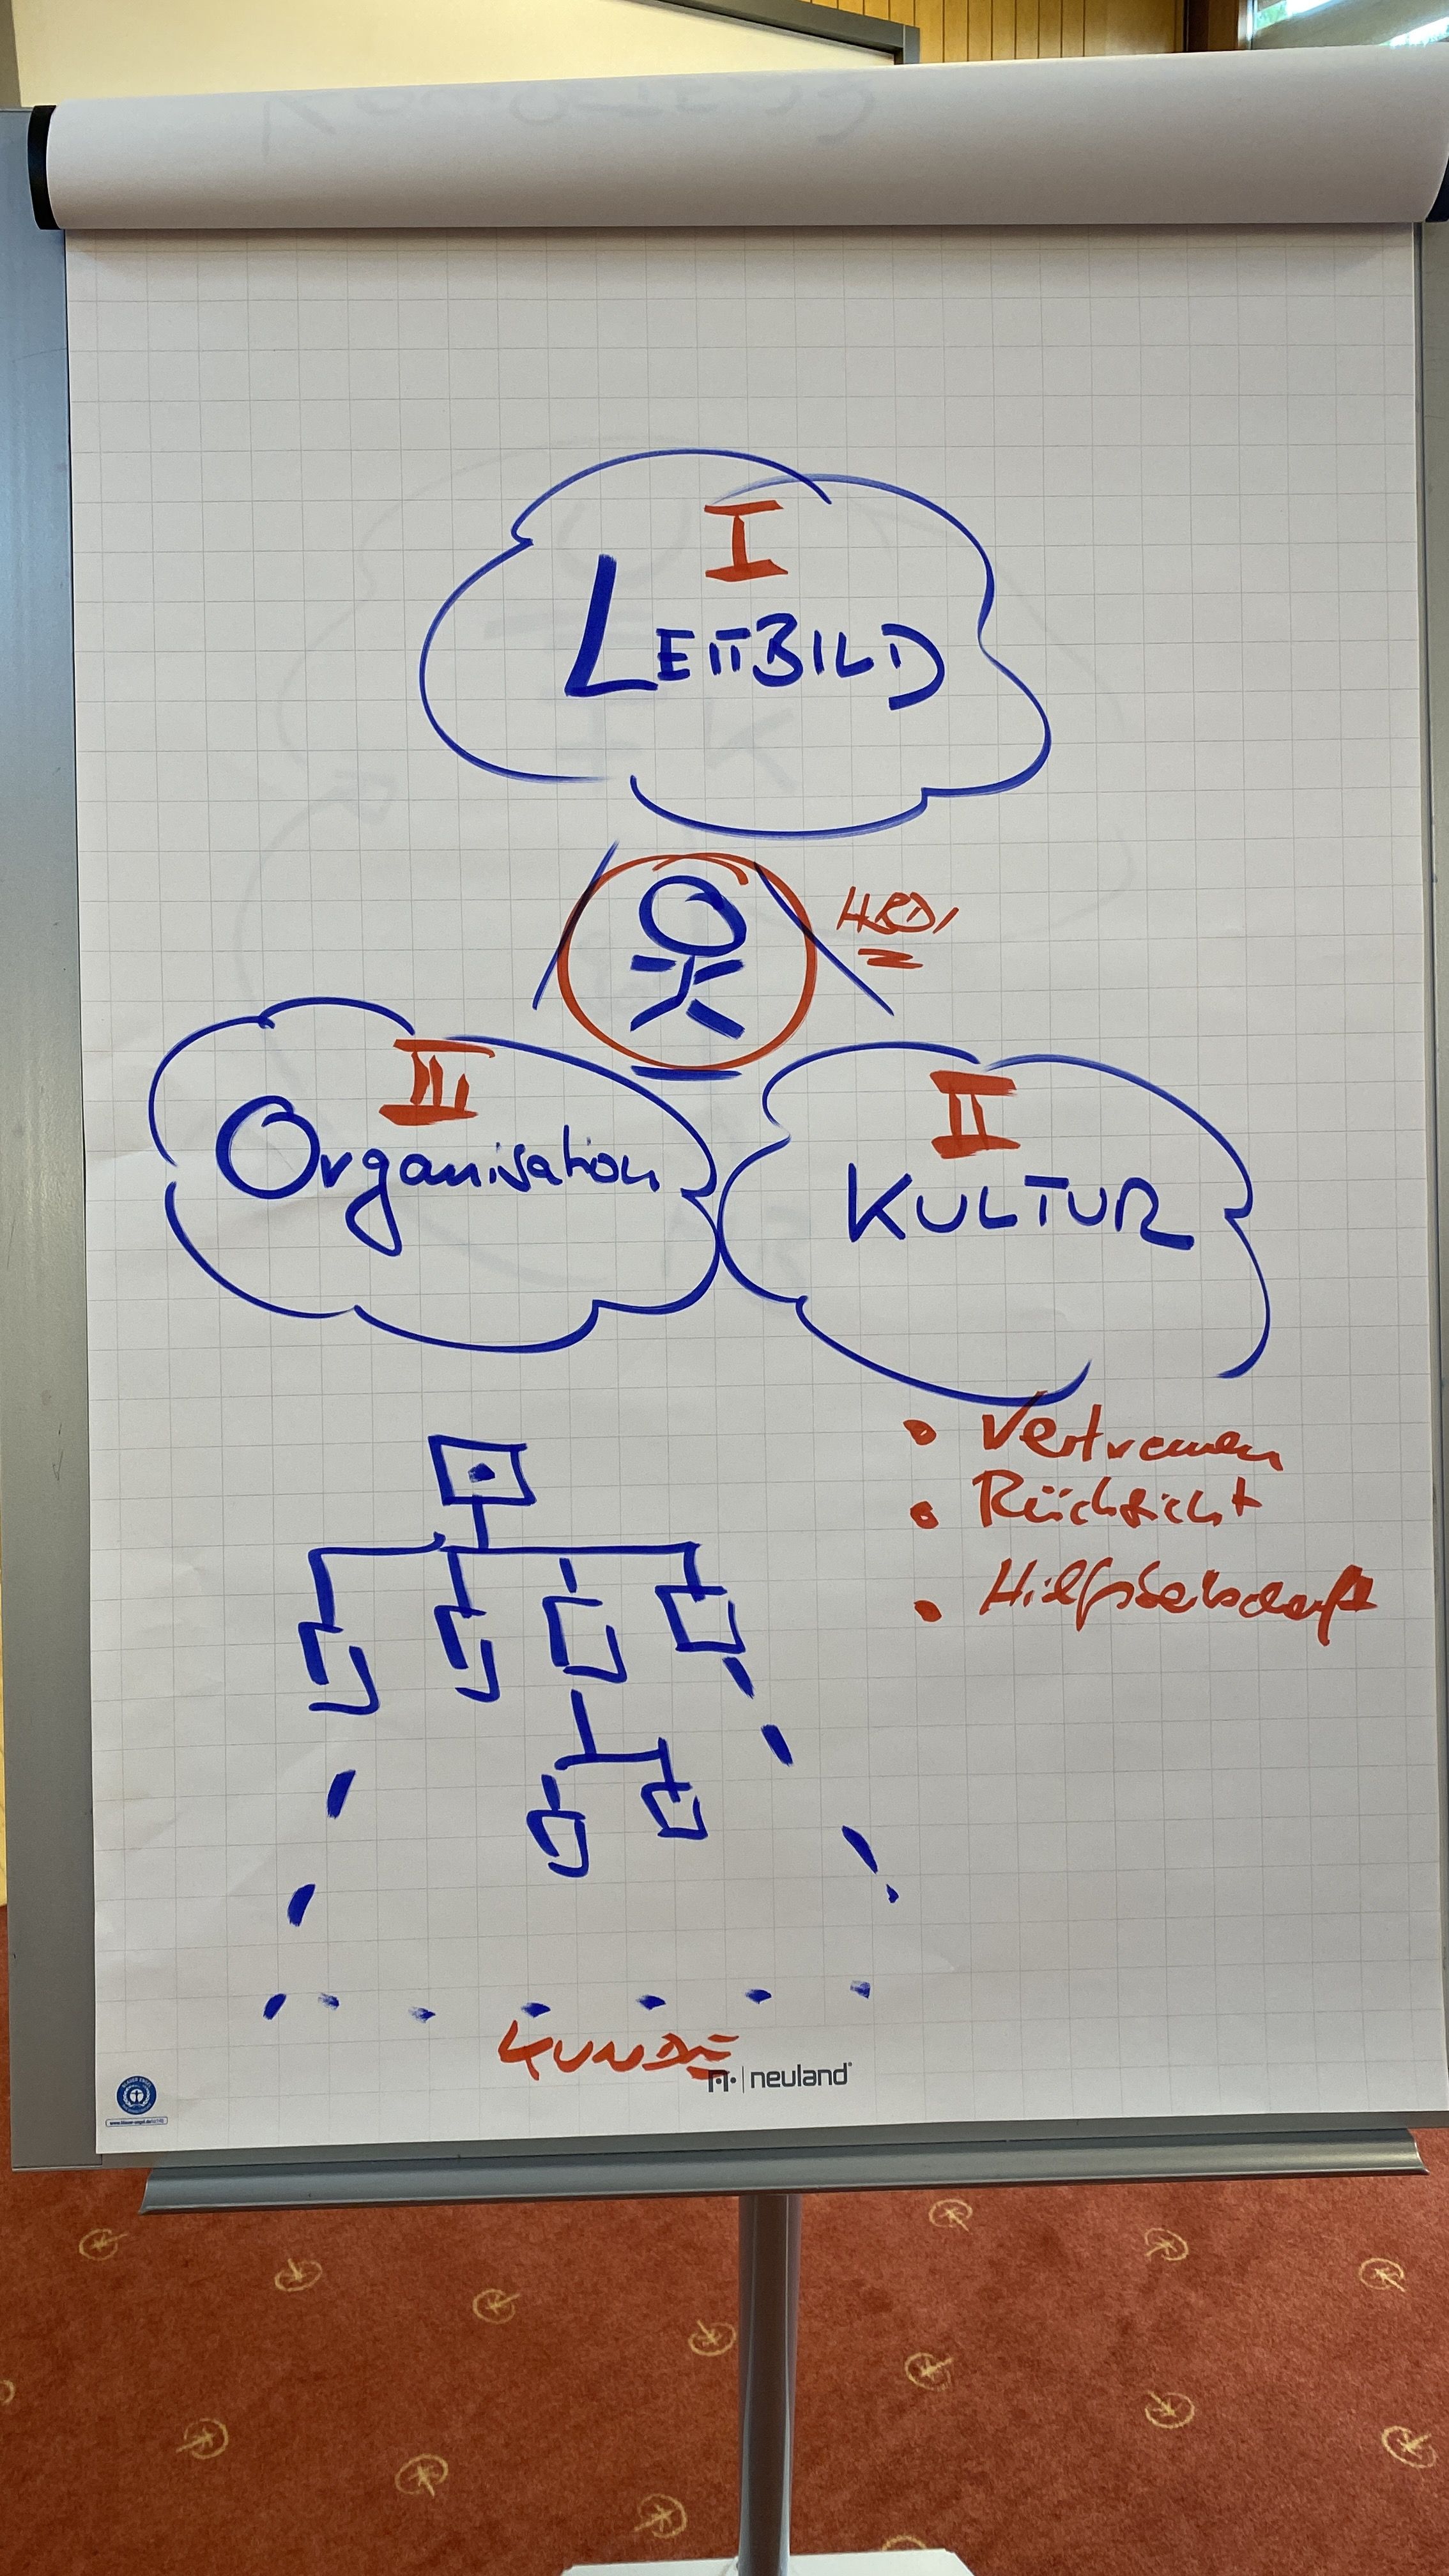 I
LEITBILD
HBDI
III
Organisation
II
KULTUR
• Vertrauen
• Rücksicht
• Hilfsbereitschaft
KUNDE
neuland